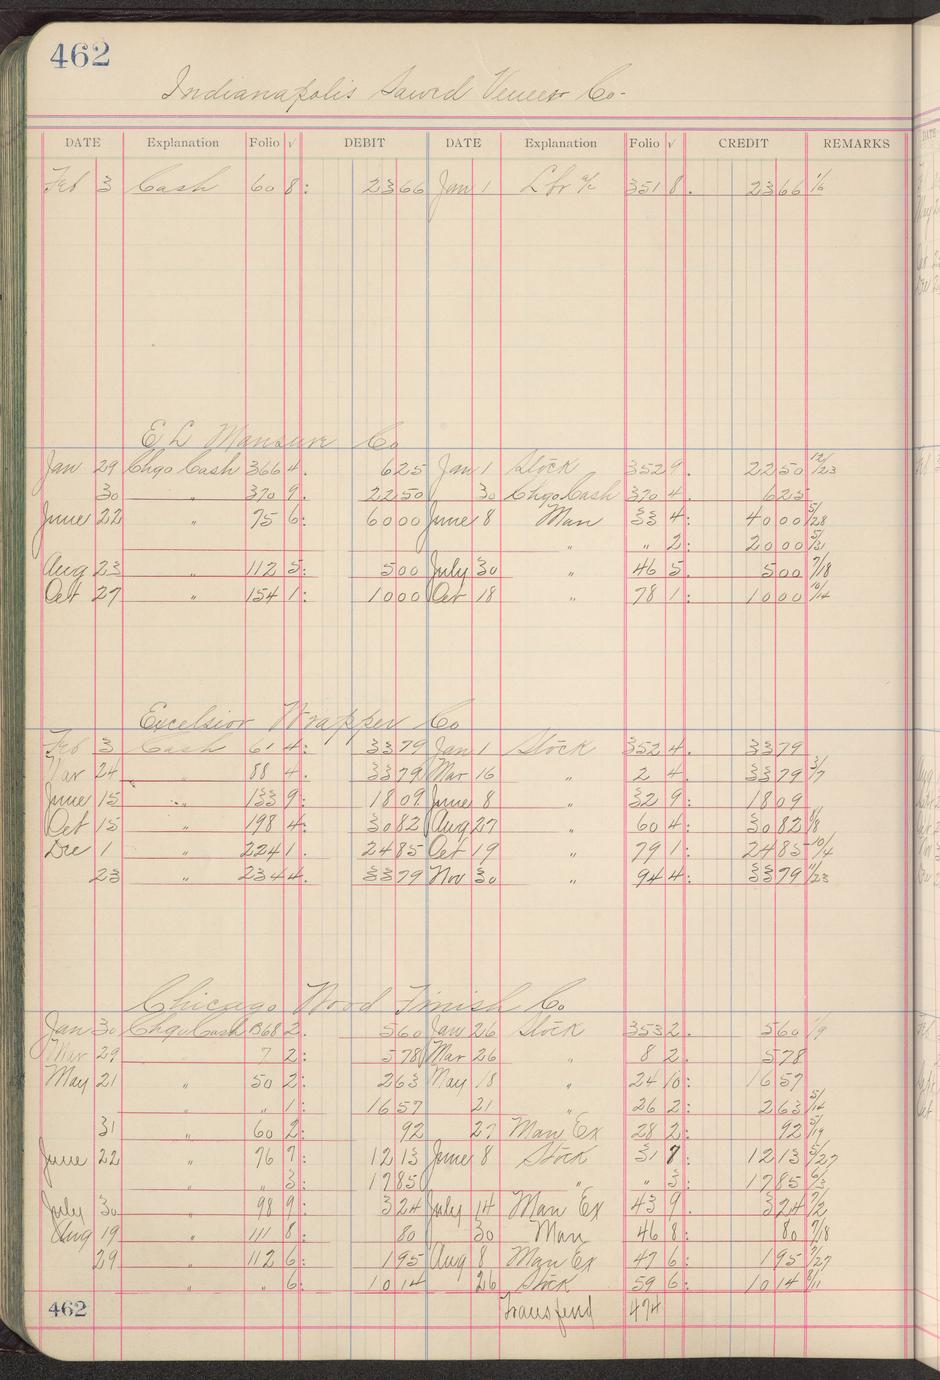 462
Indianapolis Sawed Veneer Co-
DATE Explanation Folio √ DEBIT DATE Explanation Folio √ CREDIT REMARKS
Feb 3 Cash 60 8: 2366 Jan 1 Lbr a/c 351 8. 2366 1/6
E L Mansure Co
Jan 29 Chgo Cash 366 4. 625 Jan 1 Stock 352 9. 2250 12/23
30 " 370 9. 2250 30 Chgo Cash 370 4. 625
June 22 " 75 6: 6000 June 8 Man 33 4: 4000 5/28
" " 2: 2000 5/31
Aug 23 " 112 5: 500 July 30 " 46 5. 500 7/18
Oct 27 " 154 1: 1000 Oct 18 " 78 1: 1000 10/14
Excelsior Wrapper Co
Feb 3 Cash 61 4: 3379 Jan 1 Stock 352 4. 3379
Mar 24 " 88 4. 3379 Mar 16 " 2 4: 3379 3/7
June 15 " 133 9: 1809 June 8 " 32 9: 1809
Oct 15 " 198 4: 3082 Aug 27 " 60 4: 3082 8/8
Dec 1 " 224 1. 2485 Oct 19 " 79 1: 2485 10/4
23 " 234 4. 3379 Nov 30 " 94 4: 3379 11/23
Chicago Wood Finish Co
Jan 30 Chgo Cash 368 2. 560 Jan 26 Stock 353 2. 560 1/9
Mar 29 " 7 2: 578 Mar 26 " 8 2. 578
May 21 " 50 2: 263 May 18 " 24 10: 1657
" " 1: 1657 21 " 26 2: 263 5/14
31 " 60 2: 92 27 Man Ex 28 2: 92 5/19
June 22 " 76 7: 1213 June 8 Stock 31 7 1213 5/27
" " 3: 1785 " " 3: 1785 6/3
July 30 " 98 9: 324 July 14 Man Ex 43 9. 324 7/2
Aug 19 " 111 8: 80 30 Man 46 8: 80 7/18
29 " 112 6: 195 Aug 8 Man Ex 47 6: 195 7/27
" " 6: 1014 26 Stock 59 6: 1014 8/11
462 Transferd 474